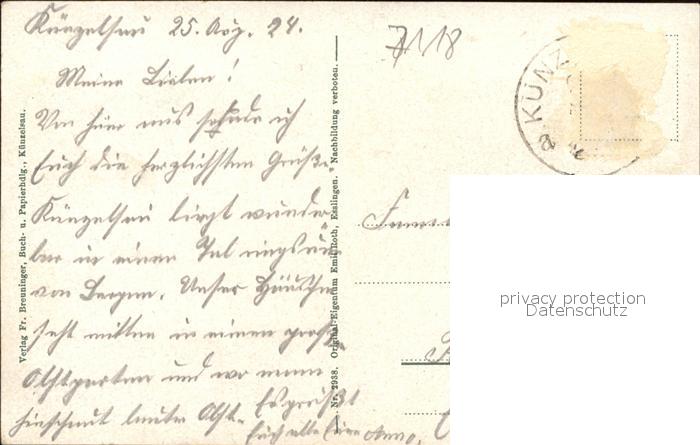 Künzelsau 25. Aug. 24.
7118
Meine Lieben!
Von hier aus sende ich
Euch die herzlichsten Grüße.
Künzelsau liegt wunder-
bar in einem Tal ringsum
von Bergen. Unser Häuschen
steht mitten in einem großen
Obstgarten und wo man
hinschaut lauter Obst. Es grüßt
Euch alle Eure Anna.
Verlag Fr. Breuninger, Buch- u. Papierhdlg., Künzelsau.
Nr. 2938. Original-Eigentum Emil Roth, Esslingen. Nachbildung verboten.
KÜNZ
privacy protection
Datenschutz